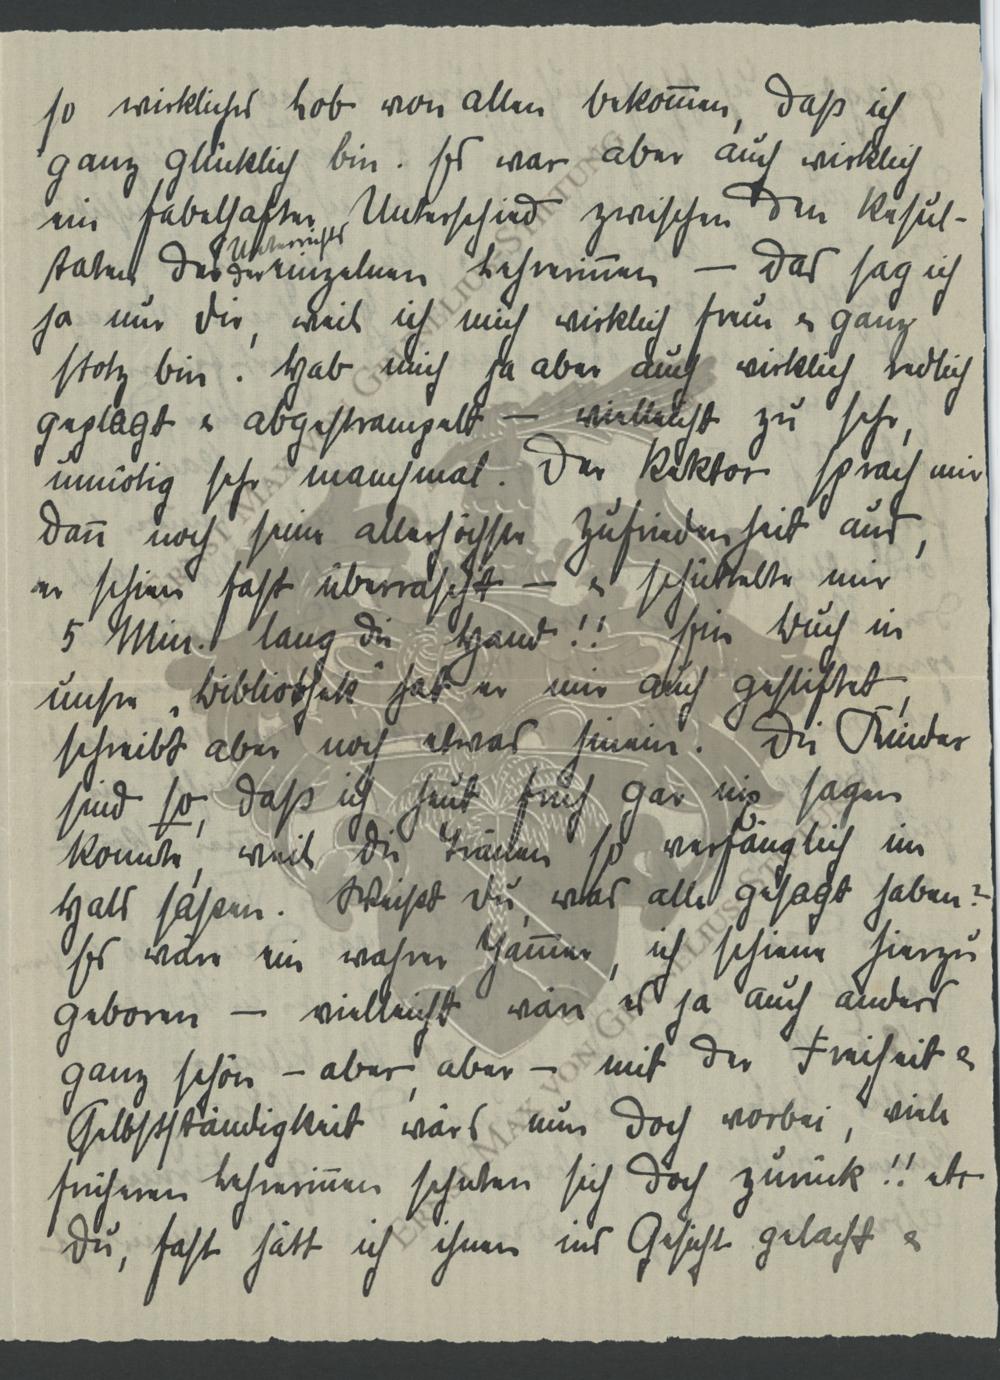 so wirkliches Lob von allen bekom̅en, daß ich
ganz glücklich bin. Es war aber auch wirklich
ein fabelhafter Unterschied zwischen den Resul-
taten des Unterrichts der einzelnen Lehrerin̅en — das sag ich
ja nur dir, weil ich mich wirklich freue & ganz
stolz bin. Hab mich ja aber auch wirklich redlich
geplagt & abgestrampelt — vielleicht zu sehr,
unnötig sehr manchmal. Der Rektor sprach mir
dan̅ noch seine allerhöchste Zufriedenheit aus,
er schien fast überrascht — & schüttelte mir
5 Min. lang die Hand!! Ein Buch in
unsre „Bibliothek" hat er mir auch gestiftet,
schreibt aber noch etwas hinein. Die Kinder
sind so, daß ich heut früh gar nix sagen
konnte, weil die Tränen so verfänglich im
Hals saßen. Weißt du, was alle gesagt haben?
Es wäre ein wahrer Jam̅er, ich schiene hierzu
geboren — vielleicht wär es ja auch anders
ganz schön — aber, aber — mit der Freiheit &
Selbstständigkeit wärs nun doch vorbei, viele
früheren Lehrerin̅en sehnten sich doch zurück!! etc
Du, fast hätt ich ihnen ins Gesicht gelacht &
MAX VON GRUNELIUS-STIFTUNG